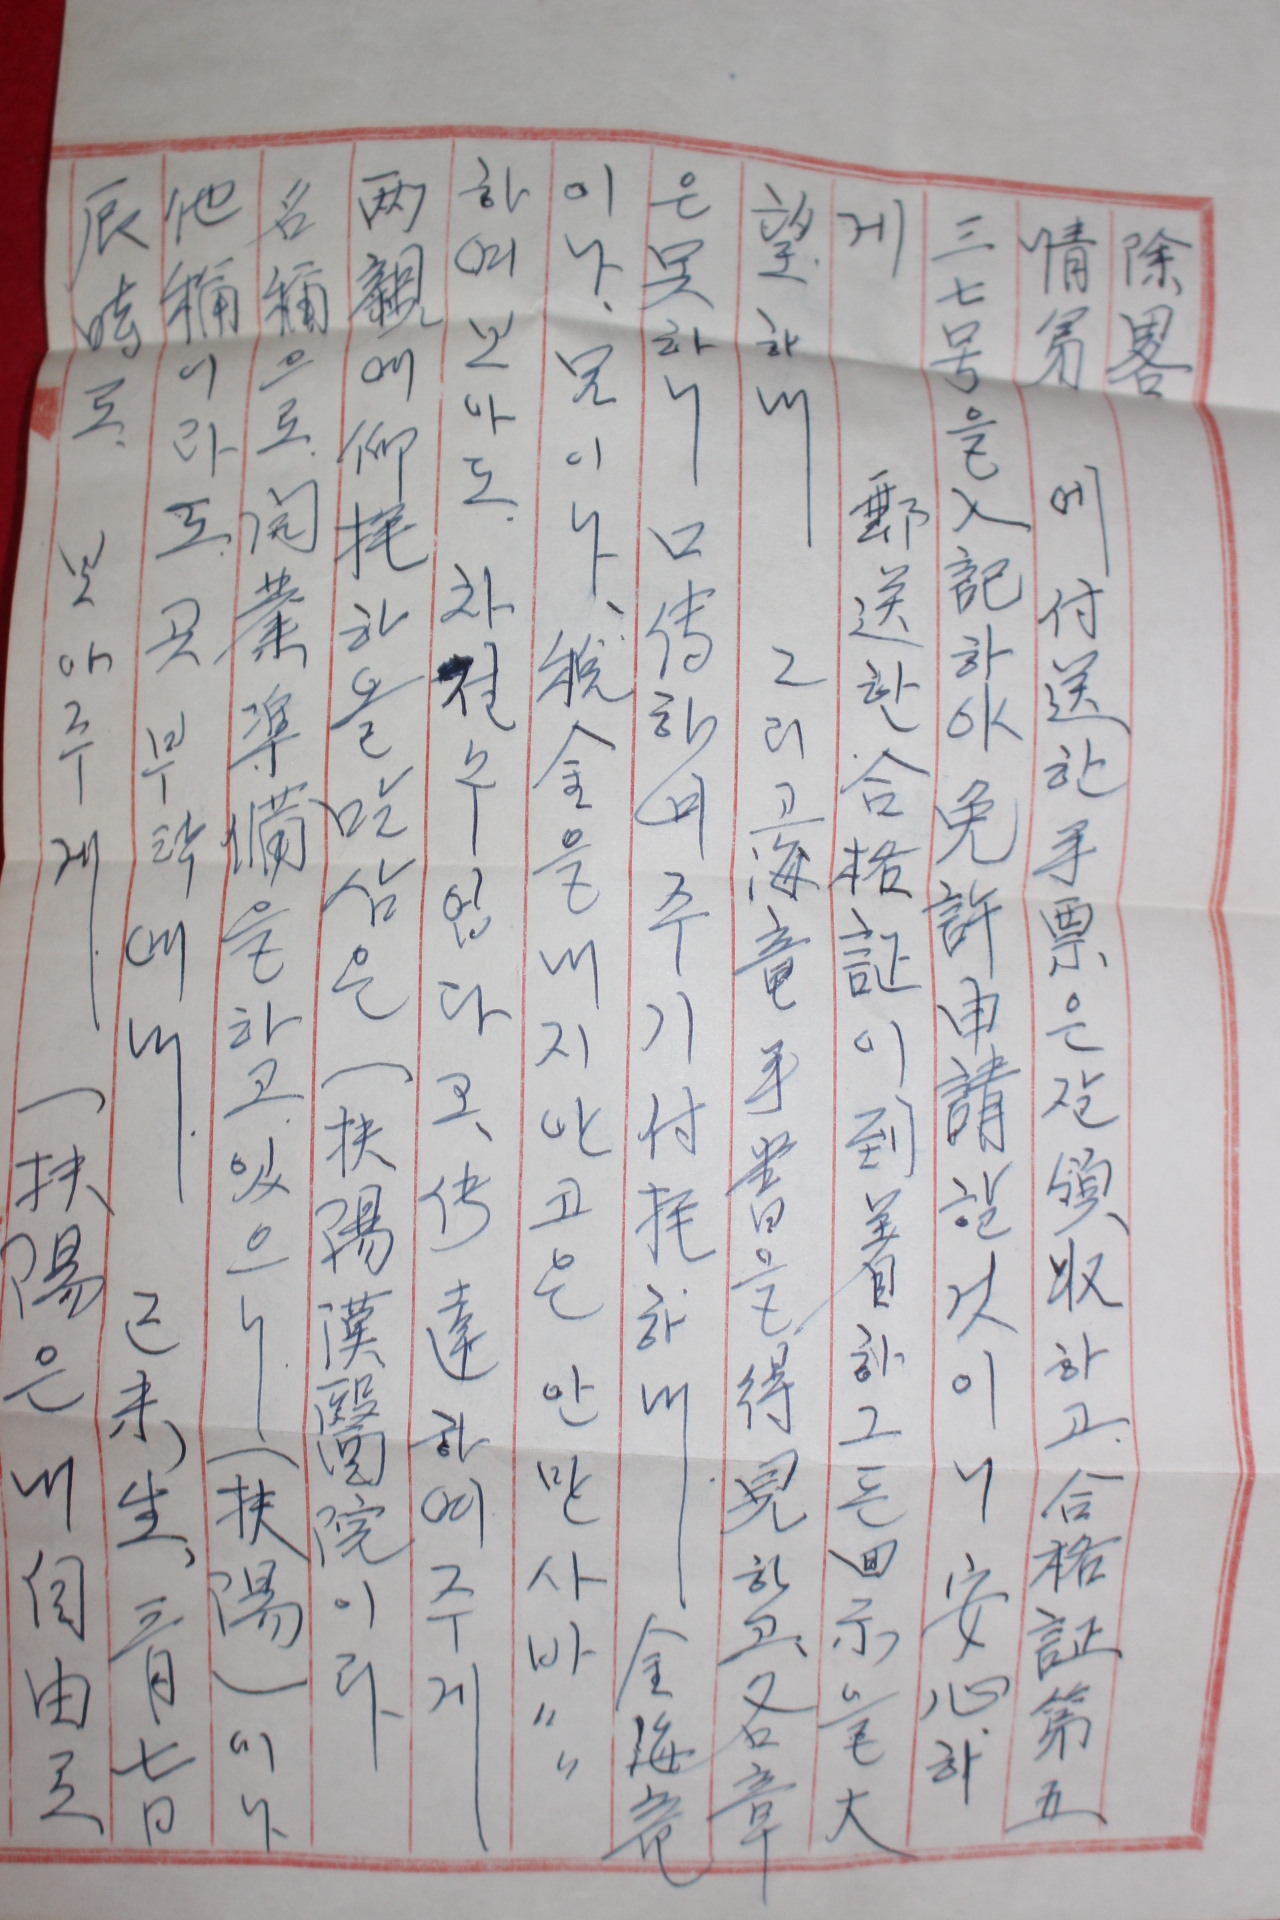 除畧
情第 에付送한手票은잘領収하고.合格証第五
三七号을入記하야免許申請할것이니安心하
게 郵送한合格証이到着하그든回示을大
望하내 그리고海竜手書을得見하고、又名章
은못하니口傳하며주기付托하내. 金海竜
이나、못이나、稅金을내지안고은안만사바〃〃
하여보아도.차질수업다고、傳達하여주게
两親에仰托하올말삼은(扶陽漢醫院이라
名稱으로.開業準備을하고.있으니(扶陽)이나
他稱이라도.곳부탁대내. 己未生、三月七日
辰時로. 보아주게. (扶陽은내自由로